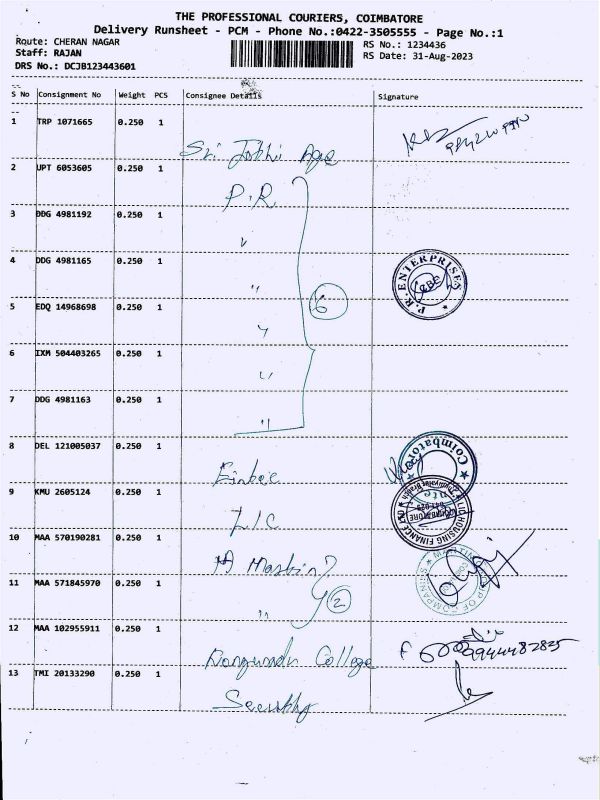 THE PROFESSIONAL COURIERS, COIMBATORE
Delivery Runsheet - PCM - Phone No.:0422-3505555 - Page No.:1
Route: CHERAN NAGAR
RS No.: 1234436
Staff: RAJAN
RS Date: 31-Aug-2023
DRS No.: DCJB123443601
S No Consignment No Weight PCS Consignee Details Signature
1 TRP 1071665 0.250 1
Sri
2 UPT 6053605 0.250 1
P.R.
3 DDG 4981192 0.250 1
4 DDG 4981165 0.250 1 "
P.R. ENTERPRISES
CBE
5 EDQ 14968698 0.250 1
6
6 IXM 504403265 0.250 1
7 DDG 4981163 0.250 1
"
8 DEL 121005037 0.250 1
Coimbatore
9 KMU 2605124 0.250 1
LIC
LIC HOUSING FINANCE
COIMBATORE
10 MAA 570190281 0.250 1
11 MAA 571845970 0.250 1
" 2
12 MAA 102955911 0.250 1
College
9944482825
13 TMI 20133290 0.250 1